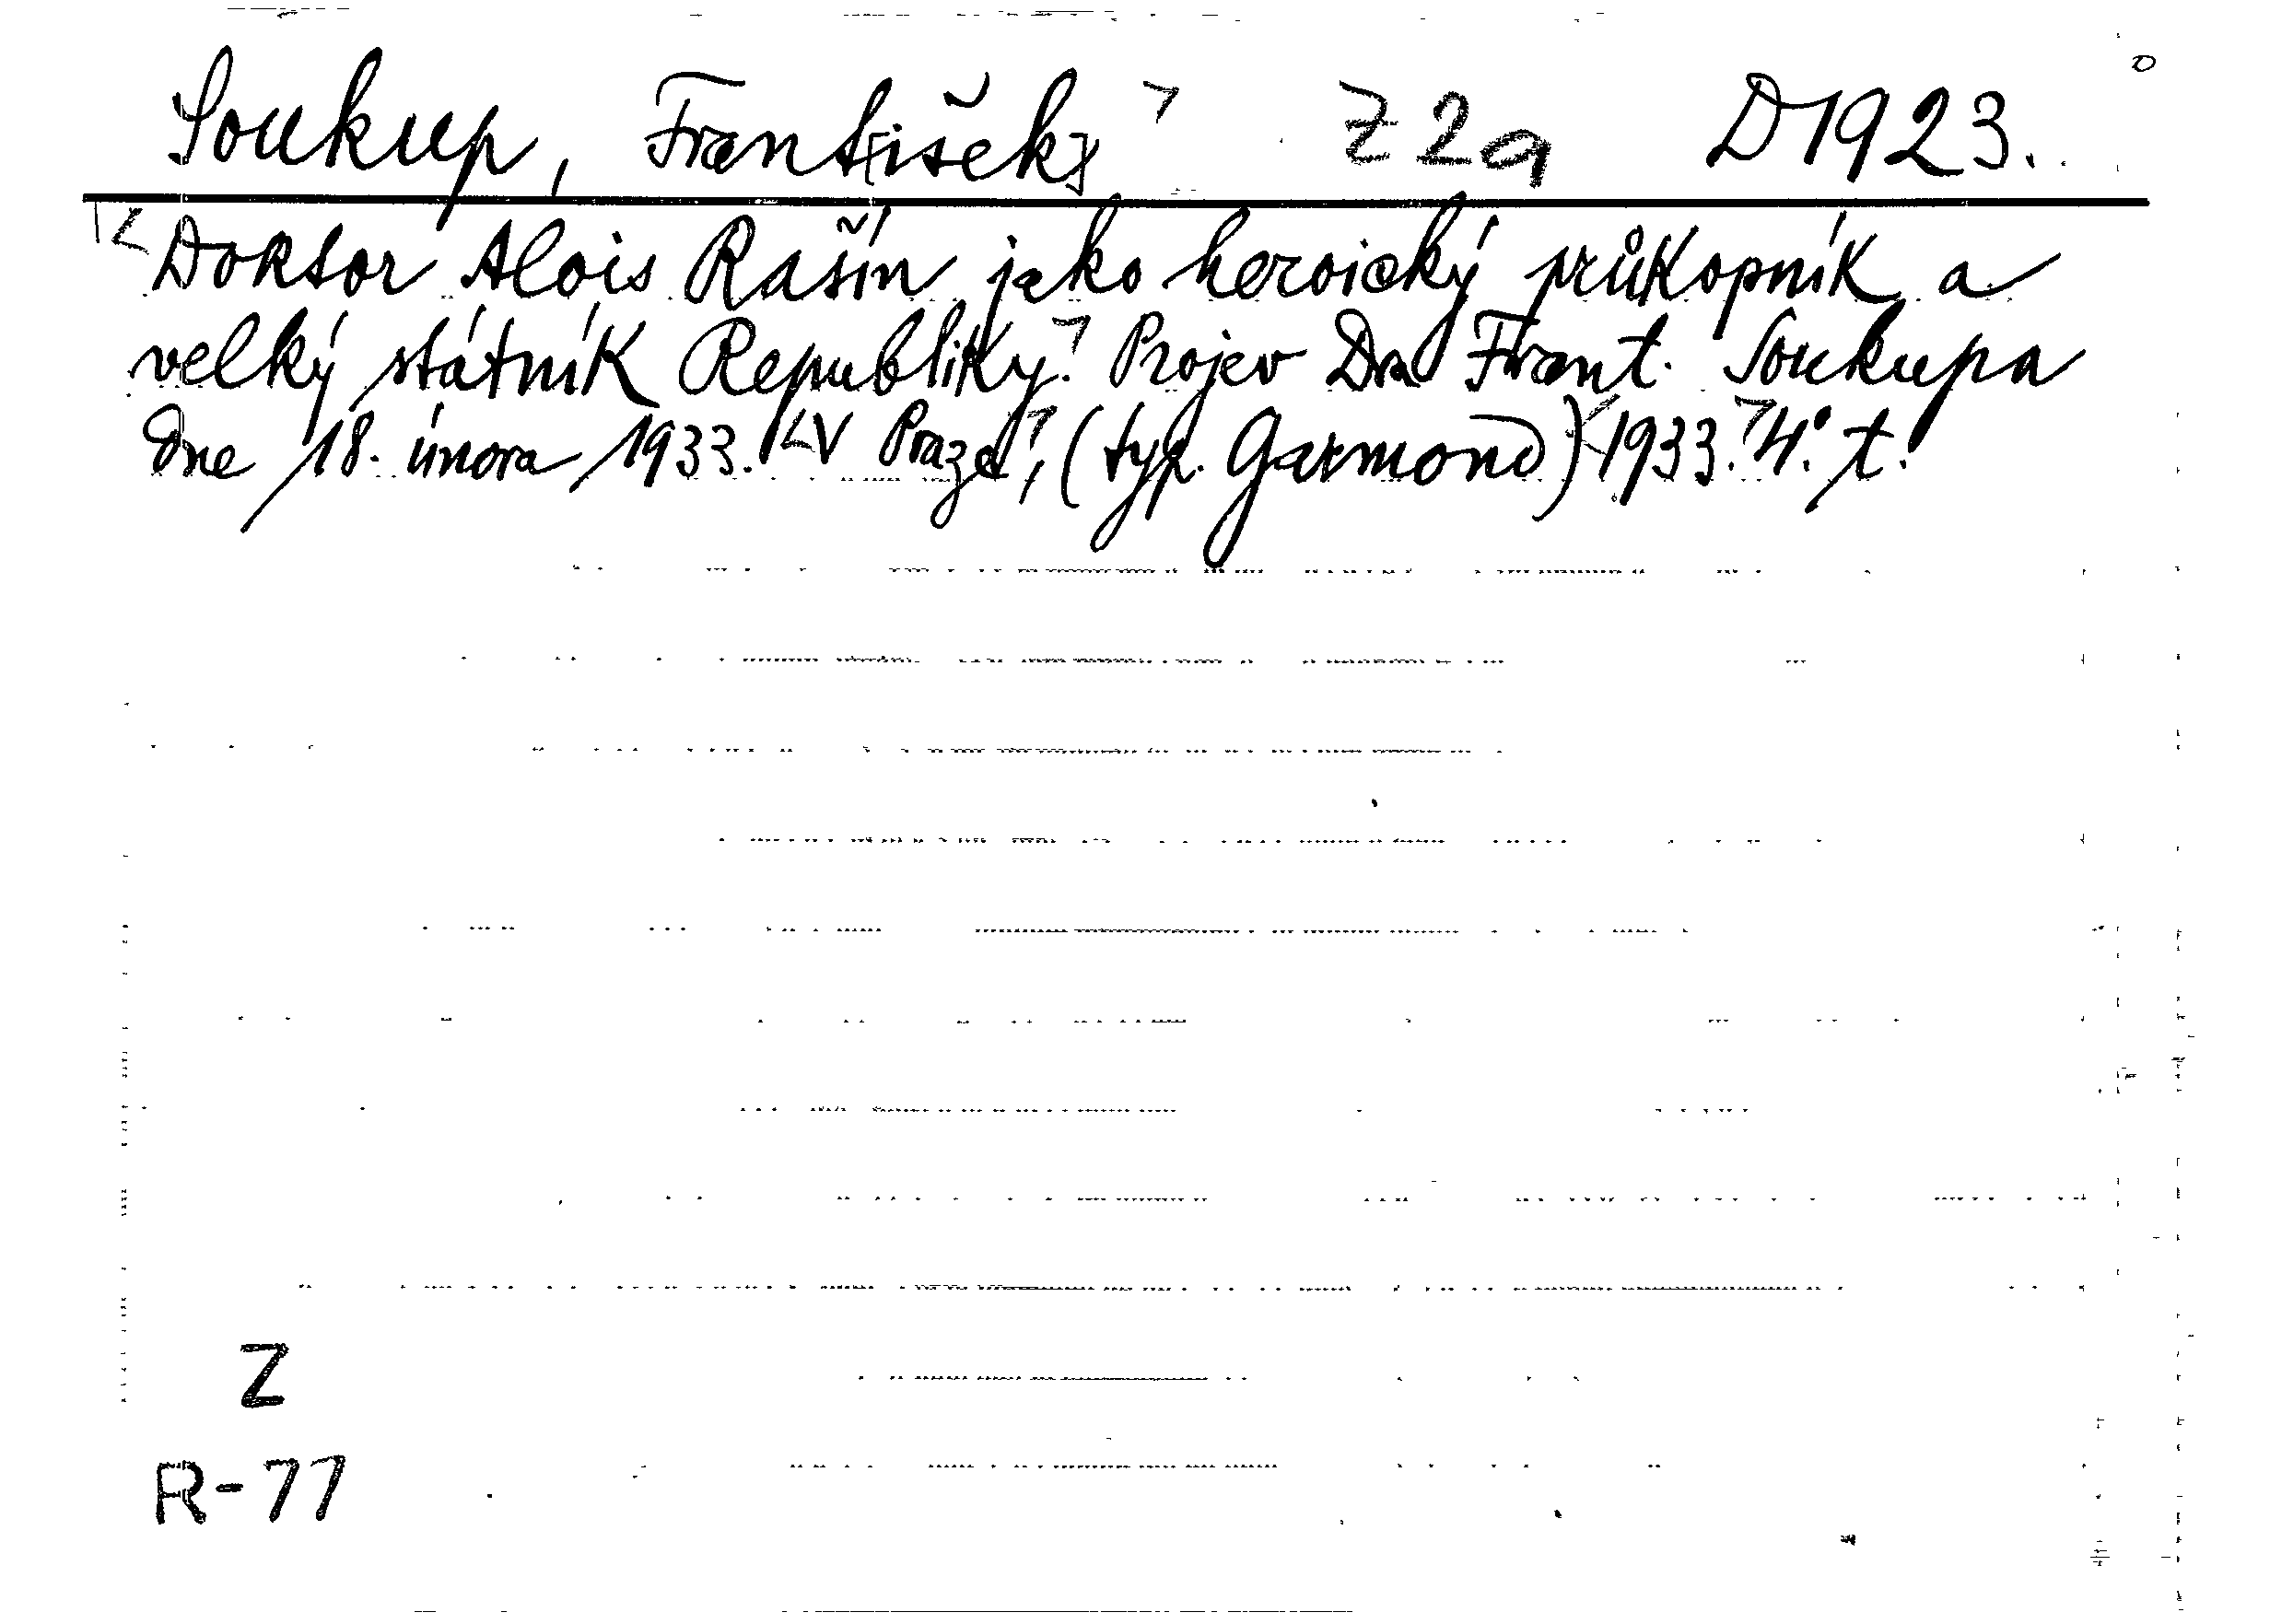 Soukup, Frant[išek] Z 2a D 1923.
Doktor Alois Rašín jako heroický průkopník a
velký státník Republiky. Projev Dra Frant. Soukupa
dne 18. února 1933. V Praze, (typ. Garmond) 1933. 4°. t.
Z
R-77